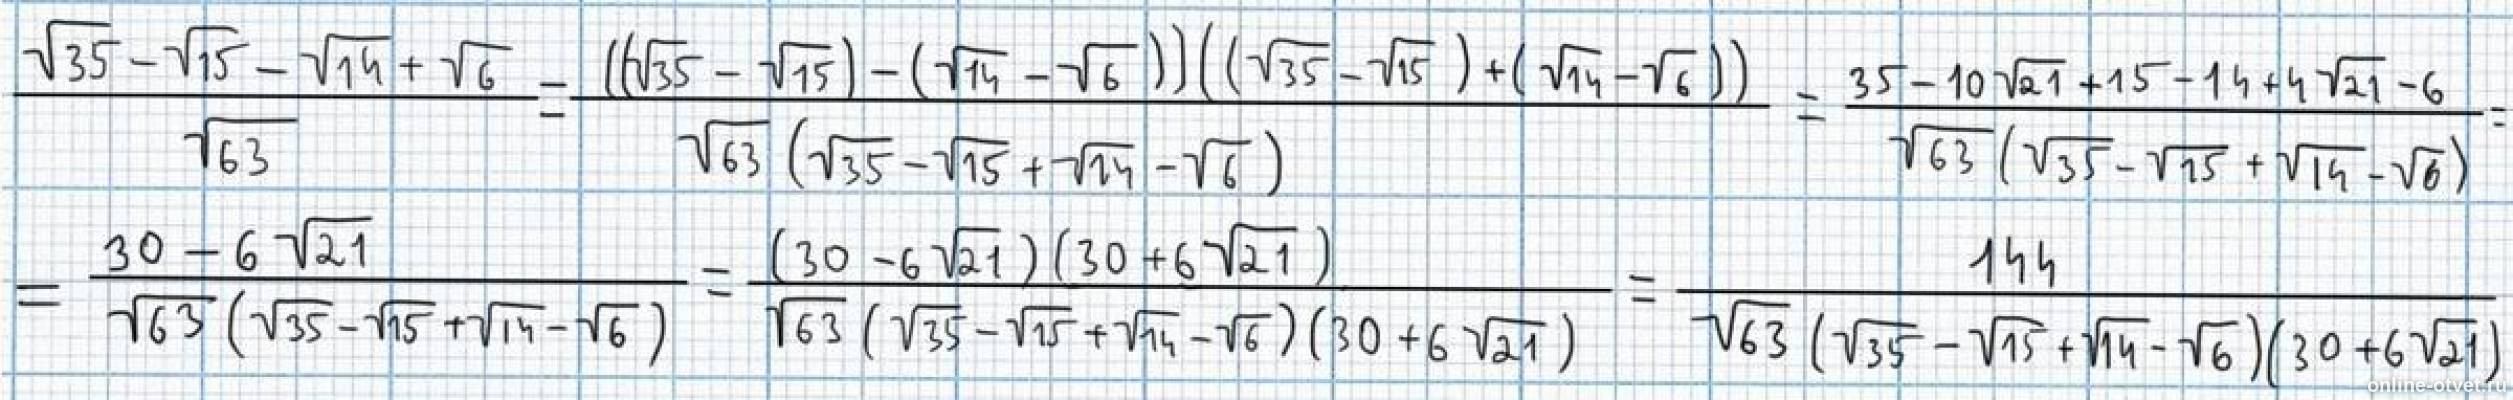 (√35 − √15 − √14 + √6) / √63 = ((√35 − √15) − (√14 − √6))((√35 − √15) + (√14 − √6)) / √63 (√35 − √15 + √14 − √6) = (35 − 10√21 + 15 − 14 + 4√21 − 6) / √63 (√35 − √15 + √14 − √6) =
= (30 − 6√21) / √63 (√35 − √15 + √14 − √6) = (30 − 6√21)(30 + 6√21) / √63 (√35 − √15 + √14 − √6)(30 + 6√21) = 144 / √63 (√35 − √15 + √14 − √6)(30 + 6√21)
online-otvet.ru